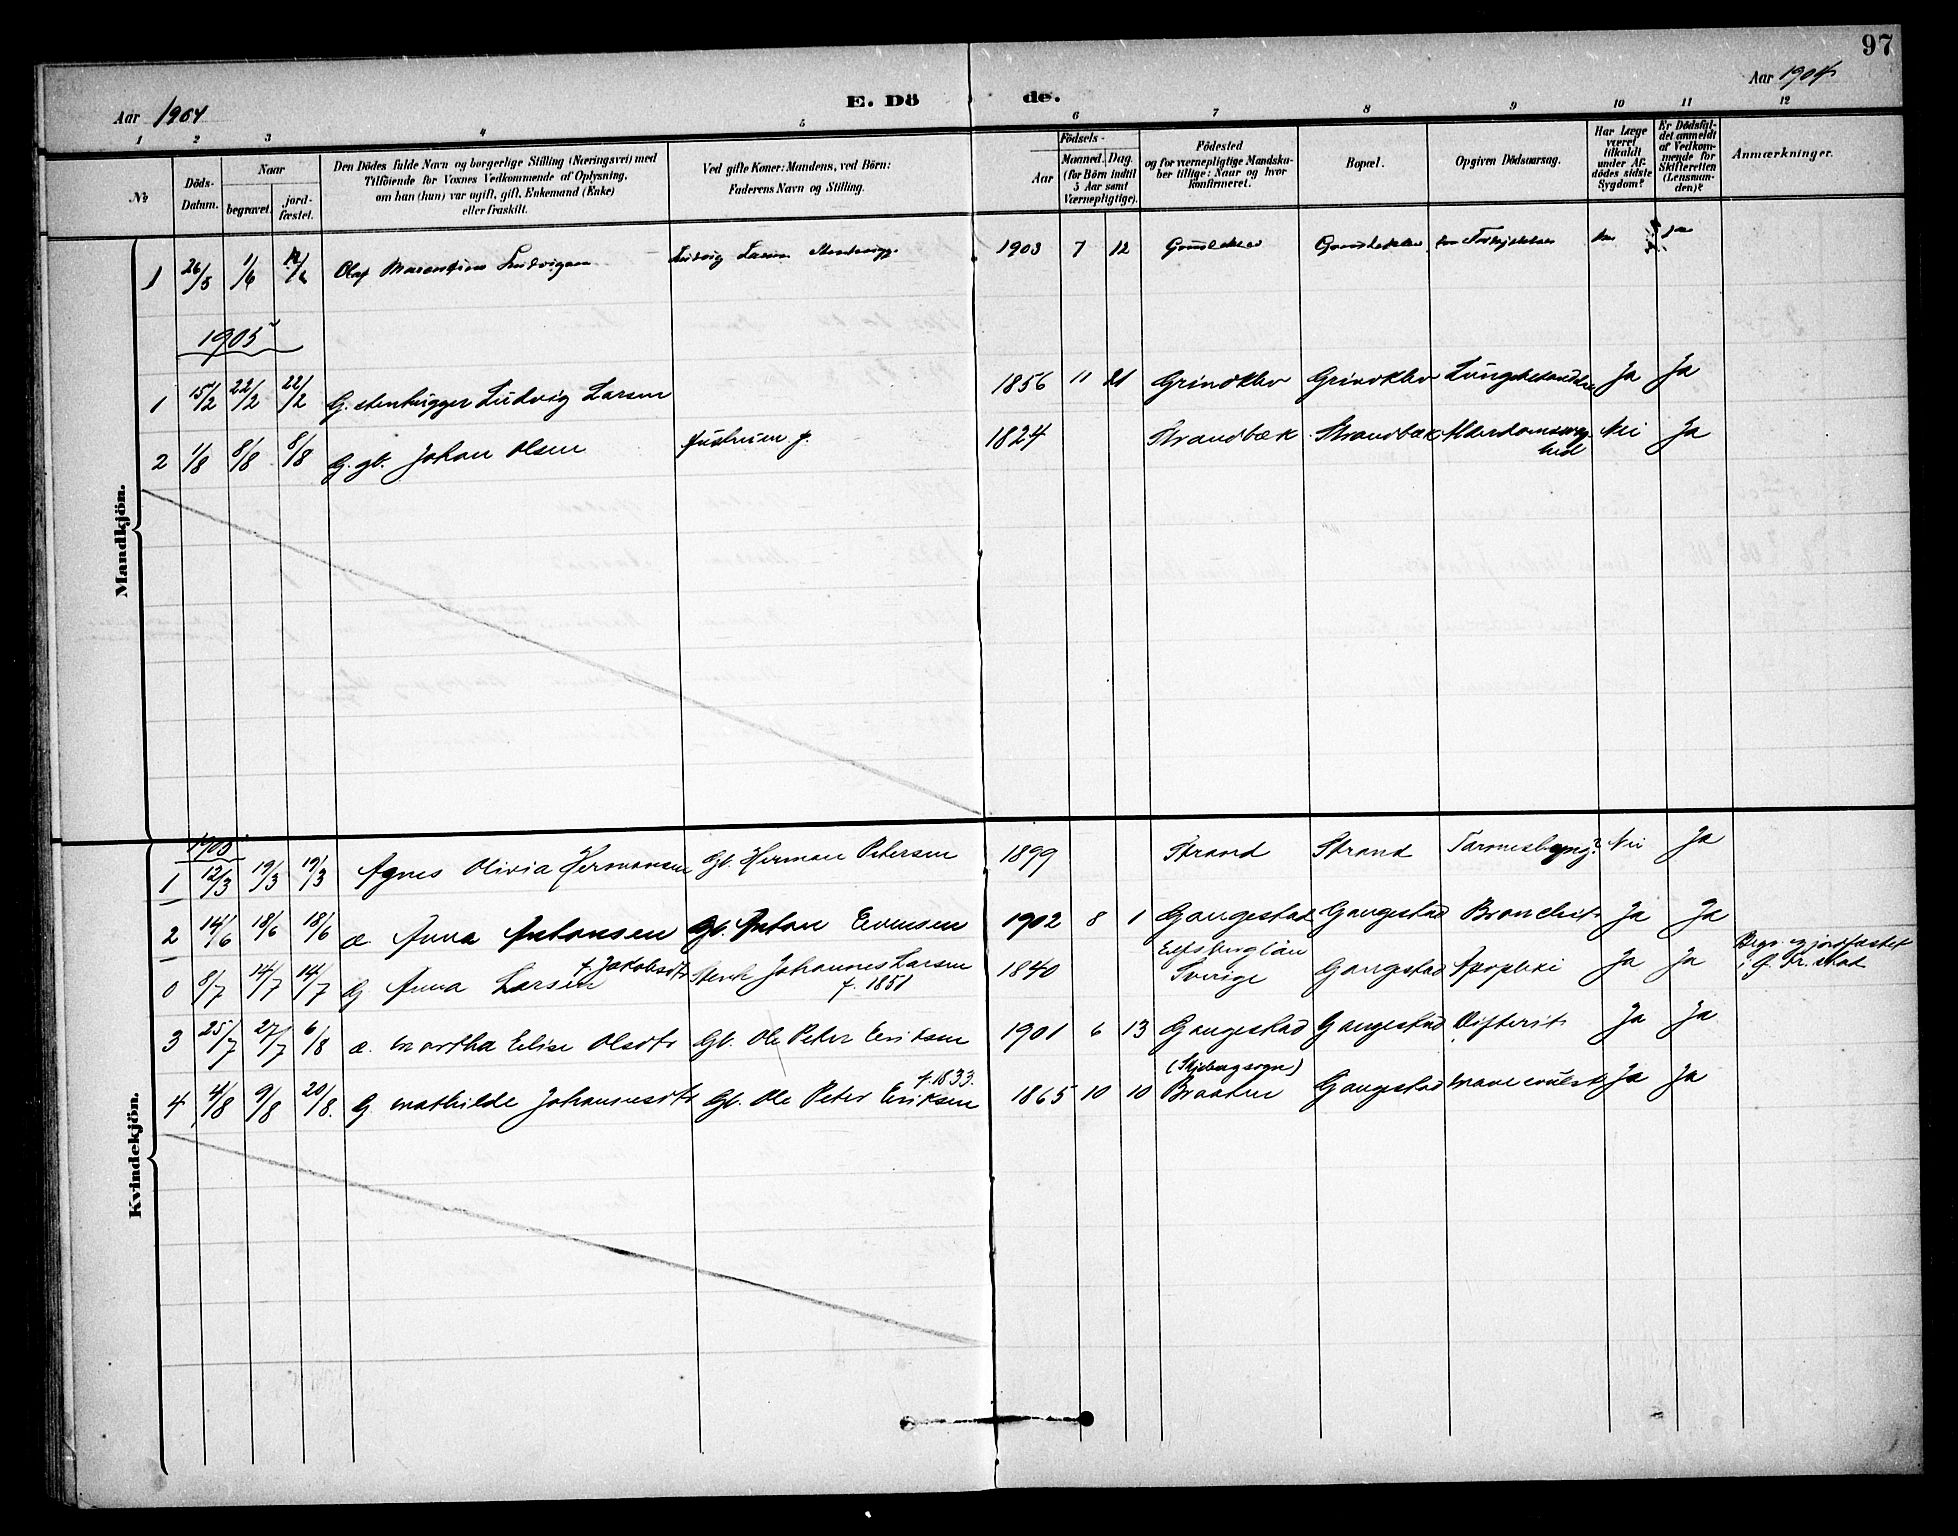 97
Aar 1904
E. Dö de.
Aar 1904
1 2 3 4 5 6 7 8 9 10 11 12
No
Döds-Datum.
Naar
begravet.
jord-fæstet.
Den Dödes fulde Navn og borgerlige Stilling (Næringsvei) med
Tilföiende for Voxnes Vedkommende af Oplysning,
om han (hun) var ugift, gift, Enkemand (Enke)
eller fraskilt.
Ved gifte Koner: Mandens, ved Börn:
Faderens Navn og Stilling.
Födsels-
Aar
Maaned. Dag.
(for Börn indtil
5 Aar samt
Værnepligtige).
Födested
og for værnepligtige Mandska-
ber tillige: Naar og hvor
konfirmeret.
Bopæl.
Opgiven Dödsaarsag.
Har Læge
været
tilkaldt
under Af-
dödes sidste
Sygdom?
Er Dödsfal-
det anmeldt
af Vedkom-
mende for
Skifteretten
(Lensman-
den)?
Anmærkninger.
Mandkjön.
1 26/5 1/6 Olaf Ludvigsen Ludvig Larsen 1903 7 12
1905
1 15/2 22/2 22/2 G. stenhugger Ludvig Larsen 1856 11 21 Grindklev Grindklev Lungebetændelse Ja Ja
2 1/8 8/8 8/8 G. gb. Johan Olsen 1824 Strandbæk Strandbæk Alderdomssvag-
hed Nei Ja
Kvindekjön.
1905
1 12/3 19/3 19/3 Agnes Olivia Hermansen Gb. Herman Petersen 1899 Strand Strand Nei Ja
2 14/6 18/6 18/6 æ. Anna Antonsen Gb. Anton Evensen 1902 8 1 Gangestad Gangestad Bronchit Ja Ja
0 8/7 14/7 14/7 G Anna Larsen f. Jakobsdtr Stenh Johannes Larsen
f. 1851 1840 Elfsborglän
Sverige Gangestad Apoplexi Ja Ja Begr. og jordfæstet
i G. Fr.stad
3 25/7 27/7 6/8 æ. Martha Elise Olsdtr Gb. Ole Peter Eriksen 1901 6 13 Gangestad Gangestad Difterit Ja Ja
4 4/8 9/8 20/8. G Mathilde Johannesdtr Gb. Ole Peter Eriksen
f. 1833. 1865 10 10 (Skjebergsogn)
Braaten Gangestad Ja Ja